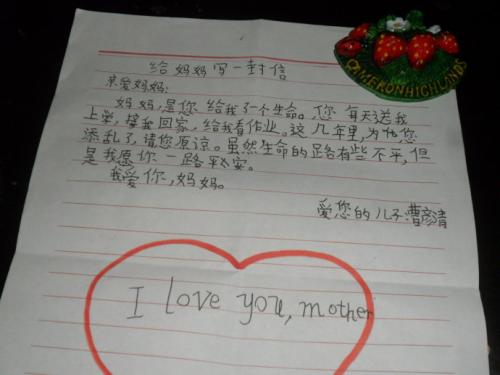 给妈妈写一封信
亲爱妈妈:
妈妈,是您给我了一个生命。您每天送我
上学,接我回家,给我看作业。这几年里,为您
添乱了,请您原谅。虽然生命的路有些不平,但
是我愿你一路平安。
我爱你,妈妈。
爱您的儿子:曹彦清
I love you, mother
CAMERON HIGHLANDS